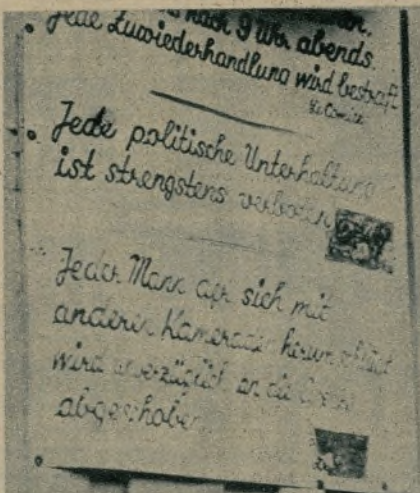 nach 9 Uhr abends.
Jede Zuwiederhandlung wird bestraft
Jede politische Unterhaltung
ist strengstens verboten
Jeder Mann der sich mit
anderen Kameraden herumschlägt
wird unverzüglich an die Grenze
abgeschoben